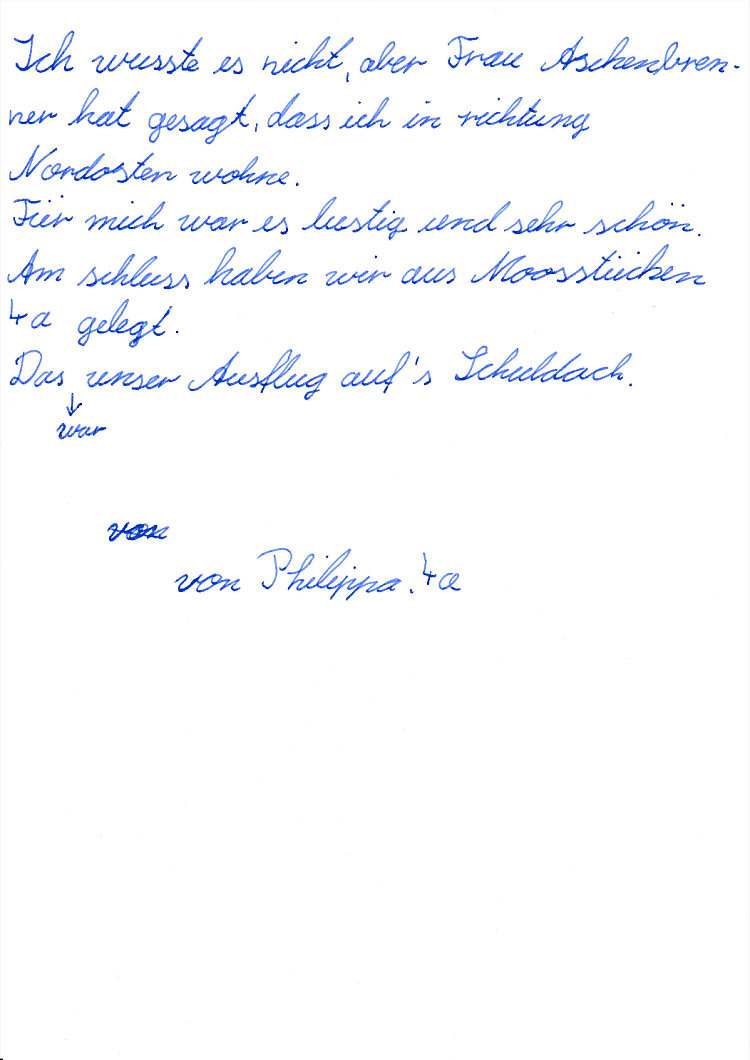 Ich wusste es nicht, aber Frau Aschenbren-
ner hat gesagt, dass ich in richtung
Nordosten wohne.
Für mich war es lustig und sehr schön.
Am schluss haben wir aus Moosstücken
4a gelegt.
Das unser Ausflug auf's Schuldach.
↓
war
von
von Philippa. 4a